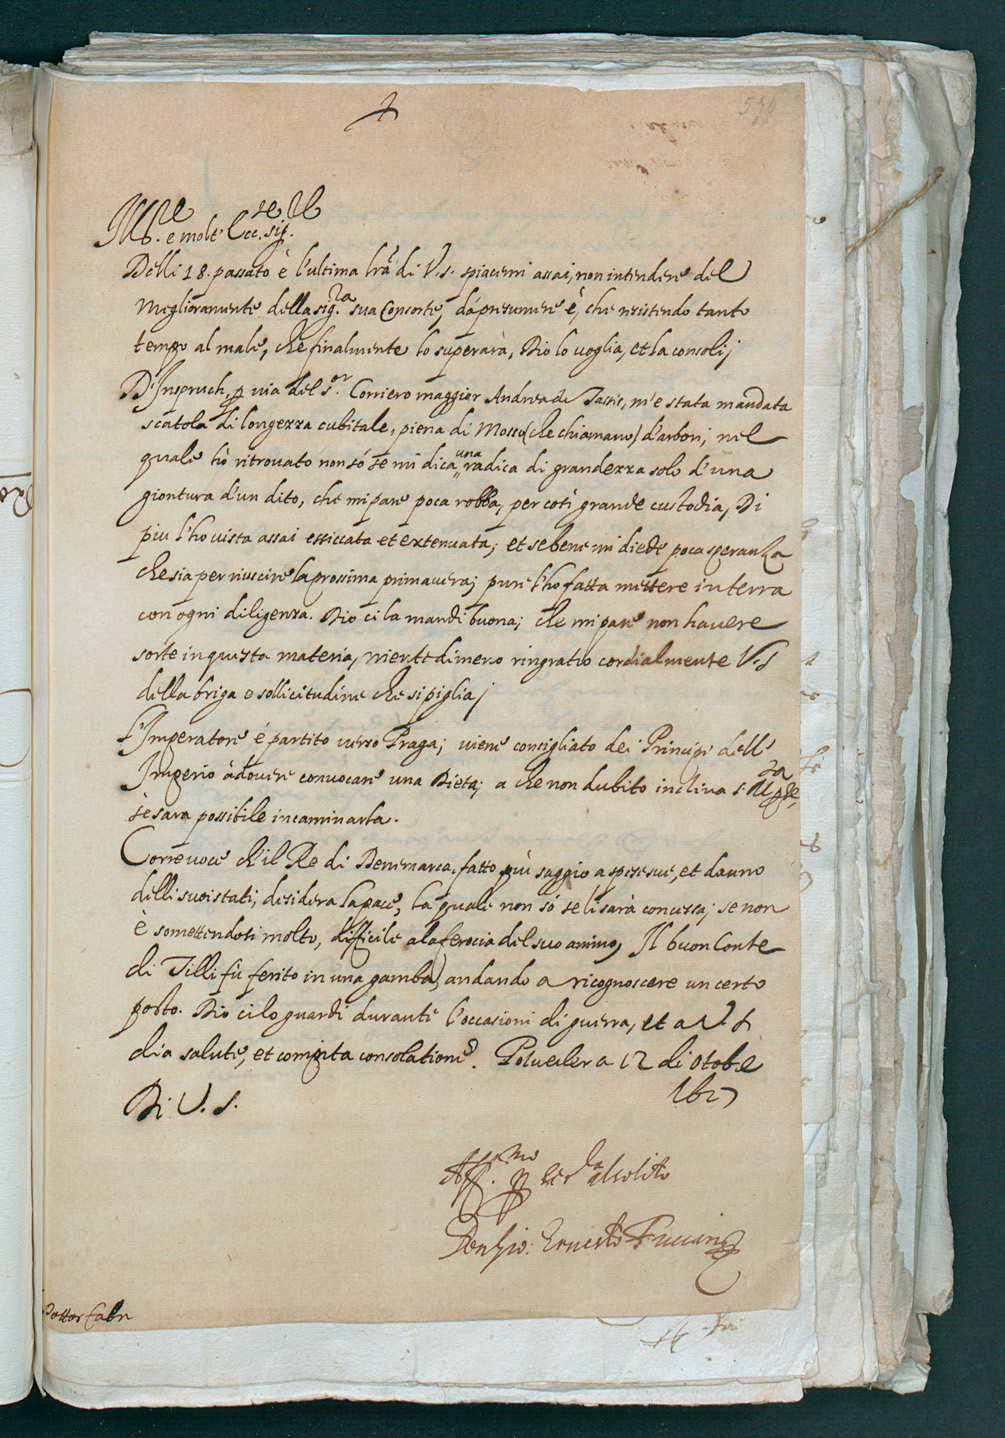 Ill.re e molt' Ecc.te sig.r
Delli 18. passato è l'ultima l'ra di V.S. spiacemi assai, non intendere del
meglioramente della sig.ra sua Consorte, da presumere è, che resistendo tanto
tempo al male, che finalmente lo superarà, Dio lo voglia, et la consoli;
D'Inspruch, p via del s.or Corriero maggior Andrea de Tassis, m'e stata mandata
scatola di longezza cubitale, piena di Mosso (che chiamano) d'arbori, nel
quale hò ritrovato non só se mi dica una radica di grandezza solo d'una
giontura d'un dito, che mi pare poca robba, per così grande custodia, Di
piu l'ho vista assai essiccata et extenuata; et se bene mi diede poca speranza
che sia per riuscire la prossima primavera; pure l'ho fatta mettere in terra
con ogni diligenza. Dio ci la mandi buona; che mi pare non havere
sorte in questa materia, nientedimeno ringratio cordialmente V.S
della briga e sollicitudine che si piglia;
L'Imperatore é partito verso Praga; viene consigliato dei Principi dell'
Imperio à dovere convocare una Dieta; a che non dubito inclina s. M.
se sara possibile incaminarla.
Corre voce ch'il Re di Denimarca, fatto più saggio a spese sue, et danno
delli suoi stati, desidera la pace, la quale non só se li sarà concessa; se non
è somettendosi molto, difficile ala ferocia del suo animo, Il buon Conte
di Tilli fù ferito in una gamba, andando a ricognoscere un certo
posto. Dio cilo guardi durante l'occasioni di guerra, et a V.S.
dia salute, et compita consolatione. Petueiler a 12 di Otob.e
1627
Di V.S.
Aff.mo p ser.la al solito
Gio: Ernesto
Dottor